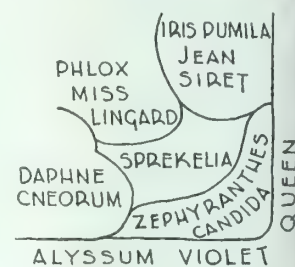 IRIS PUMILA
JEAN
SIRET
PHLOX
MISS
LINGARD
SPREKELIA
DAPHNE
CNEORUM
ZEPHYRANTHES
CANDIDA
ALYSSUM VIOLET
QUEEN